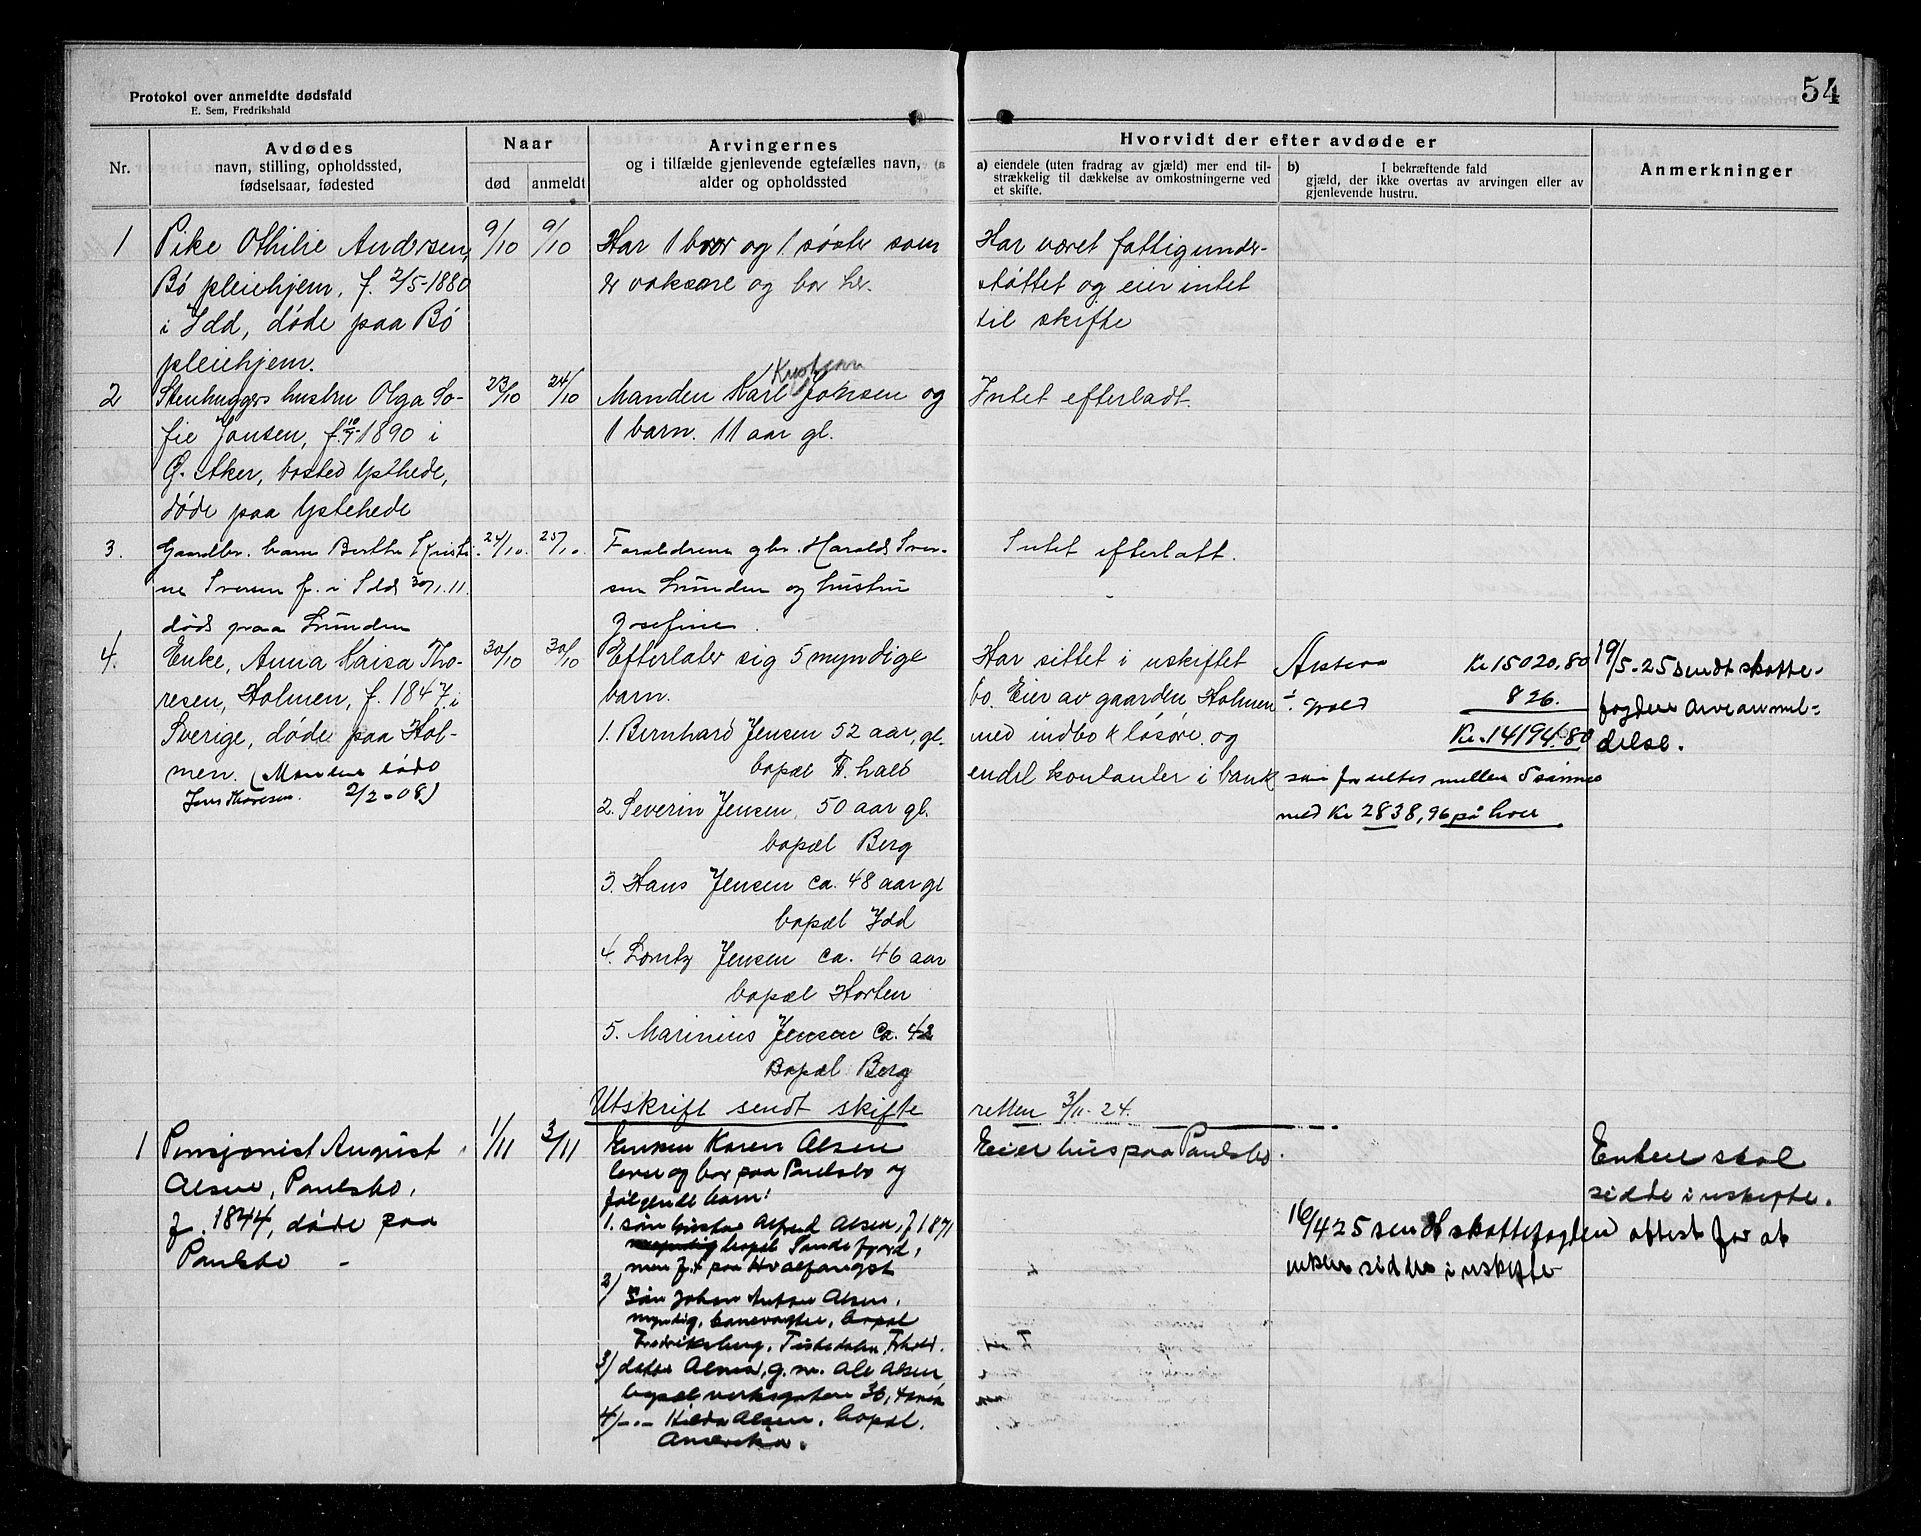 54
Protokol over anmeldte dødsfald
E. Sem, Fredrikshald
Nr.
Avdødes
navn, stilling, opholdssted,
fødselsaar, fødested
Naar
død
anmeldt
Arvingernes
og i tilfælde gjenlevende egtefælles navn,
alder og opholdssted
Hvorvidt der efter avdøde er
a) eiendele (uten fradrag av gjæld) mer end til-
strækkelig til dækkelse av omkostningerne ved
et skifte.
b) I bekræftende fald
gjæld, der ikke overtas av arvingen eller av
gjenlevende hustru.
Anmerkninger
1
Pike Othilie Andersen,
Bø pleiehjem, f. 2/5-1880
i Idd, døde paa Bø
pleiehjem.
9/10
9/10
Har 1 bror og 1 søster som
er voksne og bor her.
Har været fattigunder-
støttet og eier intet
til skifte
2
Stenhuggers hustru Olga So-
fie Jansen, f. 1890 i
Ø. Aker, bosted Ystehede,
døde paa Ystehede
23/10
24/10
Kristian
Manden Karl Johsen og
1 barn. 11 aar gl.
Intet efterladt.
3.
Gaardbr. barn Berthe Kristi-
ne Iversen f. i Idd 30/1.11.
døds paa Lunden
24/10.
25/10.
Foreldrene gbr. Harald Iver-
sen Lunden og hustru
Josefine.
Intet efterlatt.
4.
Enke, Anna Kaisa Tho-
resen, Holmen, f. 1847 i
Sverige, døde paa Hol-
men. (Manden døde
Jens Thoresen. 2/2-08)
30/10
30/10
Efterlater sig 5 myndige
barn.
1. Bernhard Jensen 52 aar, gl.
bopæl F.hald
2. Severin Jensen, 50 aar gl.
bopæl Berg
3. Hans Jensen ca. 48 aar gl
bopæl Idd
4. Lorntz Jensen ca. 46 aar
bopæl Horten
5. Marinius Jensen ca. 42
Bopæl Berg
Utskrift sendt skifte
retten 3/11-24.
Har sittet i uskiftet
bo. Eier av gaarden Holmen
med indbo & løsøre. og
endel kontanter i bank
Kr 15020,80
÷ gjæld 826.
Kr. 14194.80
som fordeltes mellem 5 sønner
med Kr 2838,96 på hver
19/5-25 sendt skatte-
fogden arveanmel-
delse.
1
Pensjonist August
Olsen, Paulsbo,
f. 1844, døde paa
Paulsbo -
1/11
3/11
Enken Karen Olsen
lever og bor paa Paulsbo og
følgende barn:
1. søn Gustav Alfred Olsen, f 1871
myndig bopæl Sandefjord,
men f.t. paa Hvalfangst
2) Søn Johan Anton Olsen,
myndig, banevogter, bopæl
Fredriksberg, Tistedalen, F.hald.
3) datter Olava, g.m. Ole Olsen,
bopæl verksgaten 36,
4) -"- Hilda Olsen, bopæl.
Amerika.
Eier hus paa Paulsbo.
Enken skal
sidde i uskifte.
16/4 25 sendt skattefogden attest for at
enken sidder i uskifte